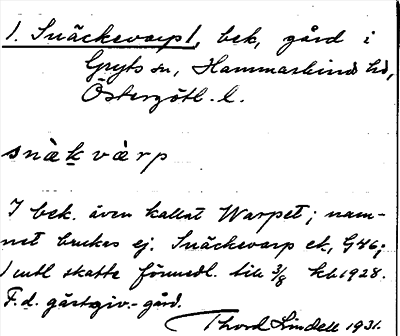 1. Snäckevarp 1, bek, gård i
Gryts sn, Hammarkinds hd,
Östergötl. l.
snàk vàrp
I bek. även kallat Warpet; nam-
net brukes ej. Snäckevarp ek, G46;
1 mtl skatte förmedl. till 3/8 kb 1928.
F.d. gästgiv.-gård.
Thord Lindell 1931.